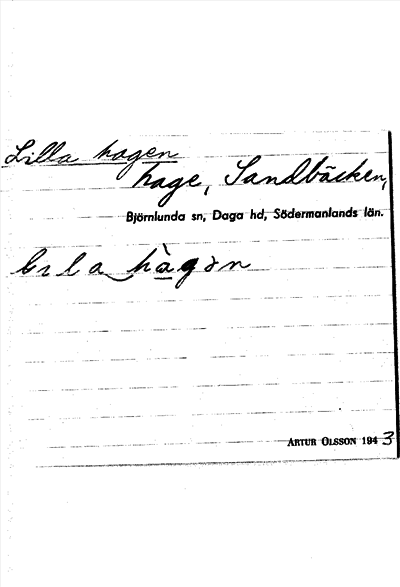 Lilla hagen
hage, Sandbäcken,
Björnlunda sn, Daga hd, Södermanlands län.
hàgɘn
ARTUR OLSSON 1943